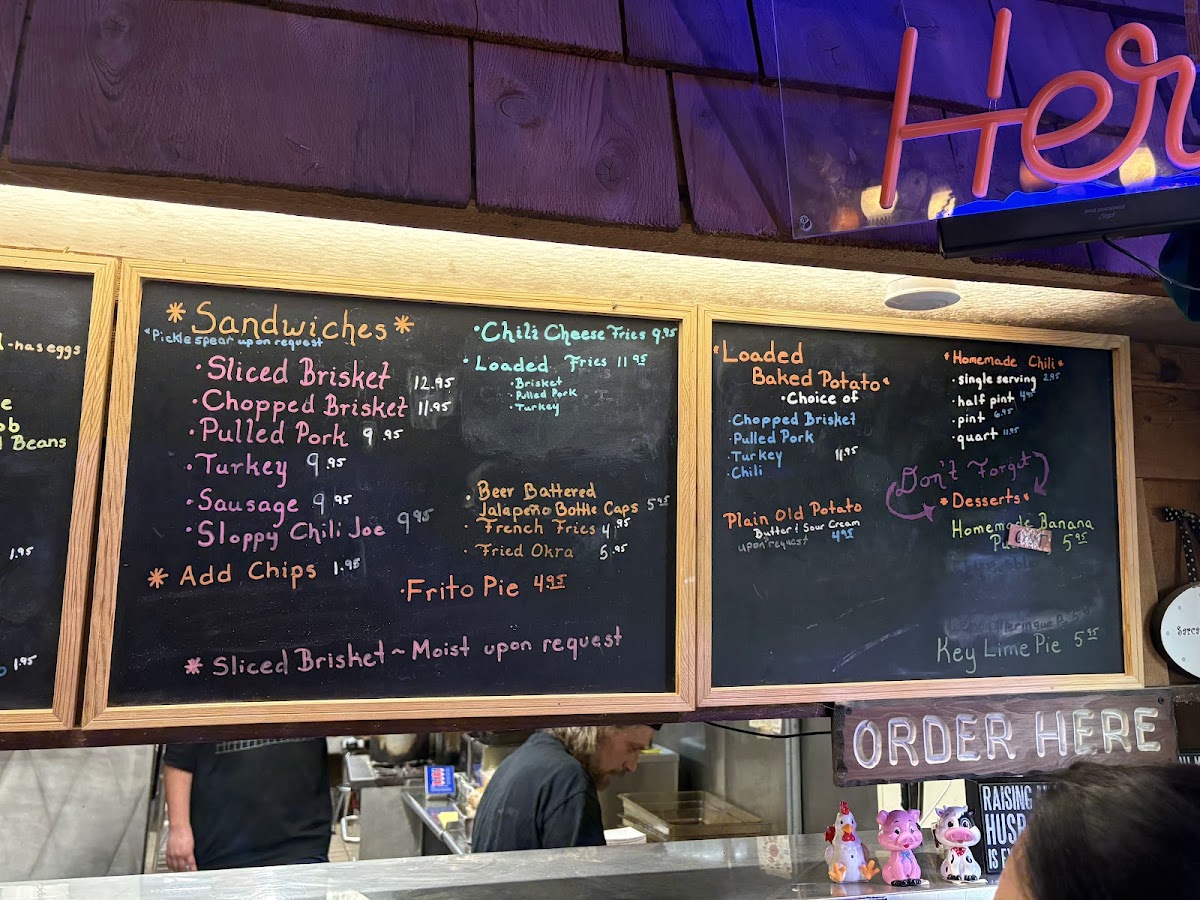 Her
-has eggs
Beans
1.95
1.95
*Sandwiches*
*Pickle spear upon request
·Sliced Brisket 12.95
·Chopped Brisket 11.95
·Pulled Pork 9.95
·Turkey 9.95
·Sausage 9.95
·Sloppy Chili Joe 9.95
* Add Chips 1.95
·Chili Cheese Fries 9.95
·Loaded Fries 11.95
·Brisket
·Pulled Pork
·Turkey
·Beer Battered
Jalapeño Bottle Caps 5.95
·French Fries 4.95
·Fried Okra 5.95
·Frito Pie 4.95
* Sliced Brisket ~ Moist upon request
*Loaded
Baked Potato*
·Choice of
·Chopped Brisket
·Pulled Pork
·Turkey 11.95
·Chili
Plain Old Potato
Butter & Sour Cream
upon request 4.95
*Homemade Chili*
·single serving 2.95
·half pint 4.95
·pint 6.95
·quart 11.95
Don't Forget
*Desserts*
Homemade Banana
5.95
Key Lime Pie 5.95
ORDER HERE
RAISING